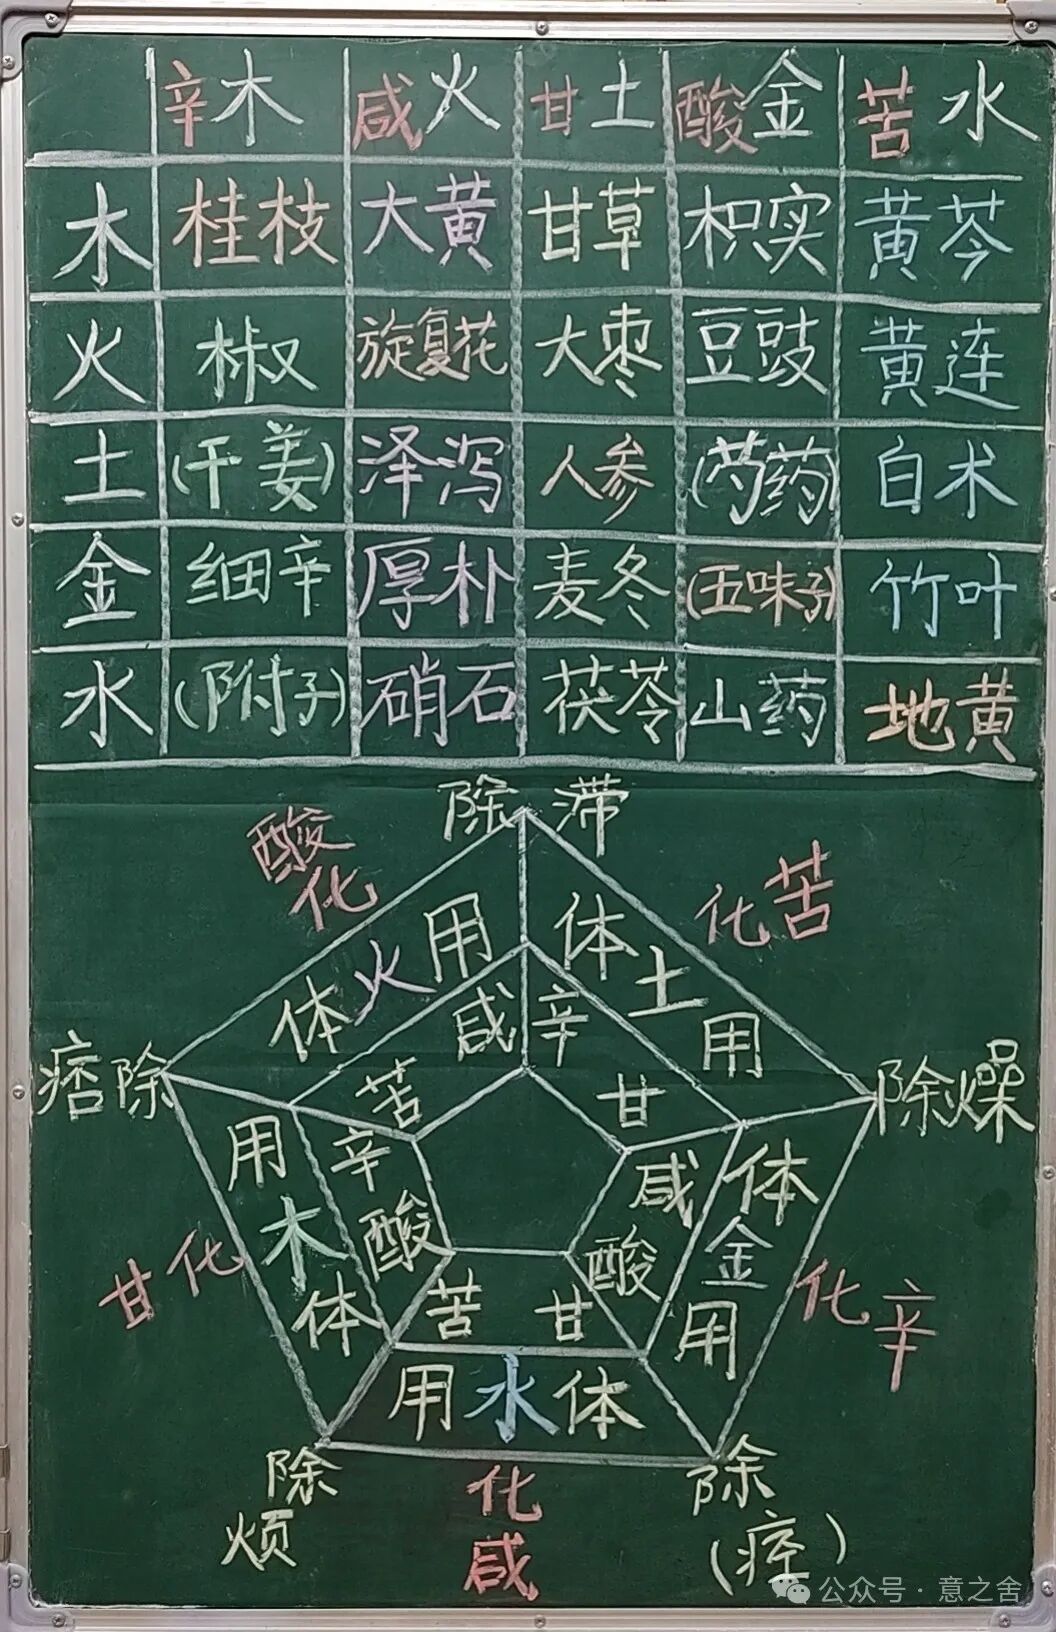 辛木 咸火 甘土 酸金 苦水
木 桂枝 大黄 甘草 枳实 黄芩
火 椒 旋复花 大枣 豆豉 黄连
土 (干姜) 泽泻 人参 (芍药) 白术
金 细辛 厚朴 麦冬 (五味子) 竹叶
水 (附子) 硝石 茯苓 山药 地黄
除滞
酸化
化苦
体火用
体土用
咸
辛
痞除
除燥
苦
甘
用木体
辛酸
咸酸
体金用
甘化
化辛
苦 甘
用水体
除烦
化咸
除(痉)
公众号·意之舍